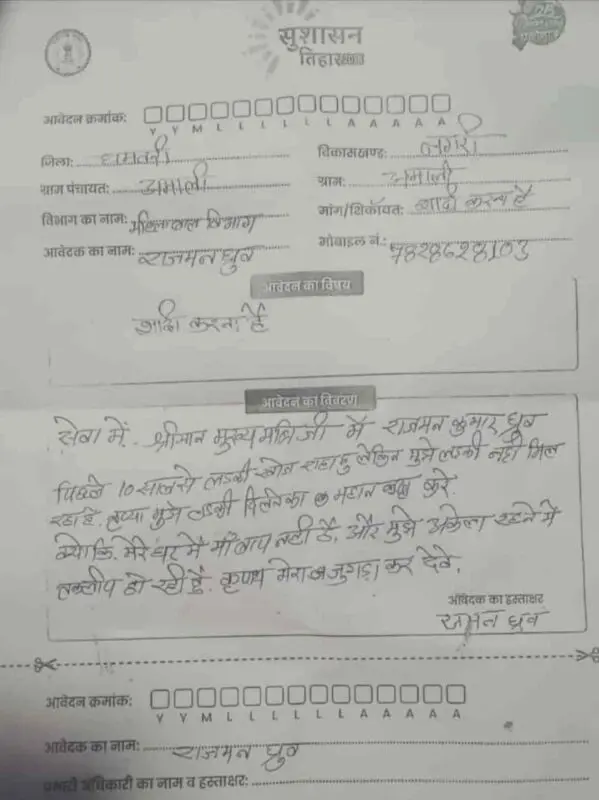 सुशासन
तिहार
आवेदन क्रमांक:
Y Y M L L L L L L A A A A A
जिला: धमतरी
विकासखण्ड: नगरी
ग्राम पंचायत: अमाली
ग्राम: अमाली
विभाग का नाम: महिला बाल विभाग
मांग/शिकायत: शादी करना है
आवेदक का नाम: राजमन ध्रुव
मोबाइल नं.:
आवेदन का विषय
शादि करना है
आवेदन का विवरण
सेवा में. श्रीमान मुख्यमंत्रि जी मै राजमन कुमार ध्रुव
पिछले 10 साल से लडकी खोज राहा हु लेकिन मुझे लडकी नही मिल
रहा है. मुझे लडकी करे.
क्योकि. मेरे घर मै माँ बाप नही है. और मुझे अकेला रहने मे
तकलीप हो रही है. मेरा जुगाड़ कर देवे.
आवेदक का हस्ताक्षर
राजमन ध्रुव
आवेदन क्रमांक:
Y Y M L L L L L L A A A A A
आवेदक का नाम: राजमन ध्रुव
प्रभारी अधिकारी का नाम व हस्ताक्षर: